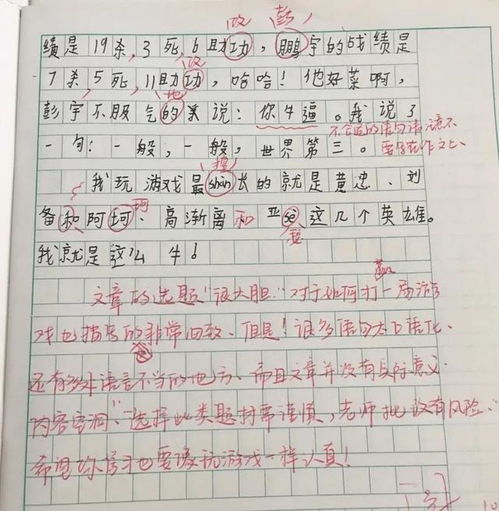 攻（彭）
绩是19杀,3死,6助功,鹏宇的战绩是
攻
7杀,5死,11助功,哈哈！他好菜啊,
地
彭宇不服气的来说：你牛逼。我说了
不合适的语句
一句：一般,一般,世界第三。要写在作文上
擅
我玩游戏最shàn长的就是黄忠、刘
备和阿珂、高渐离和亚se这几个英雄。
我就是这么牛！
文章的选题“很大胆”对于如何打一局游
戏也描写的非常细致、但是！很多语句太口语化、
还有多处语言不当的地方、而且文章并没有实际意义
内容空洞、选择此类题材需谨慎，老师批改有风险、
希望你学习也要像玩游戏一样认真！